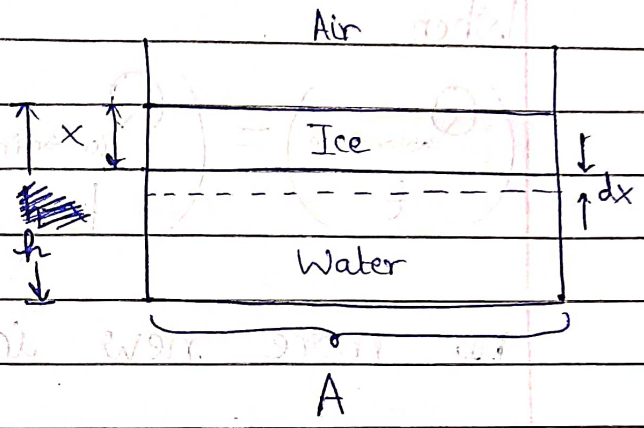 Air
x
Ice
dx
h
Water
A